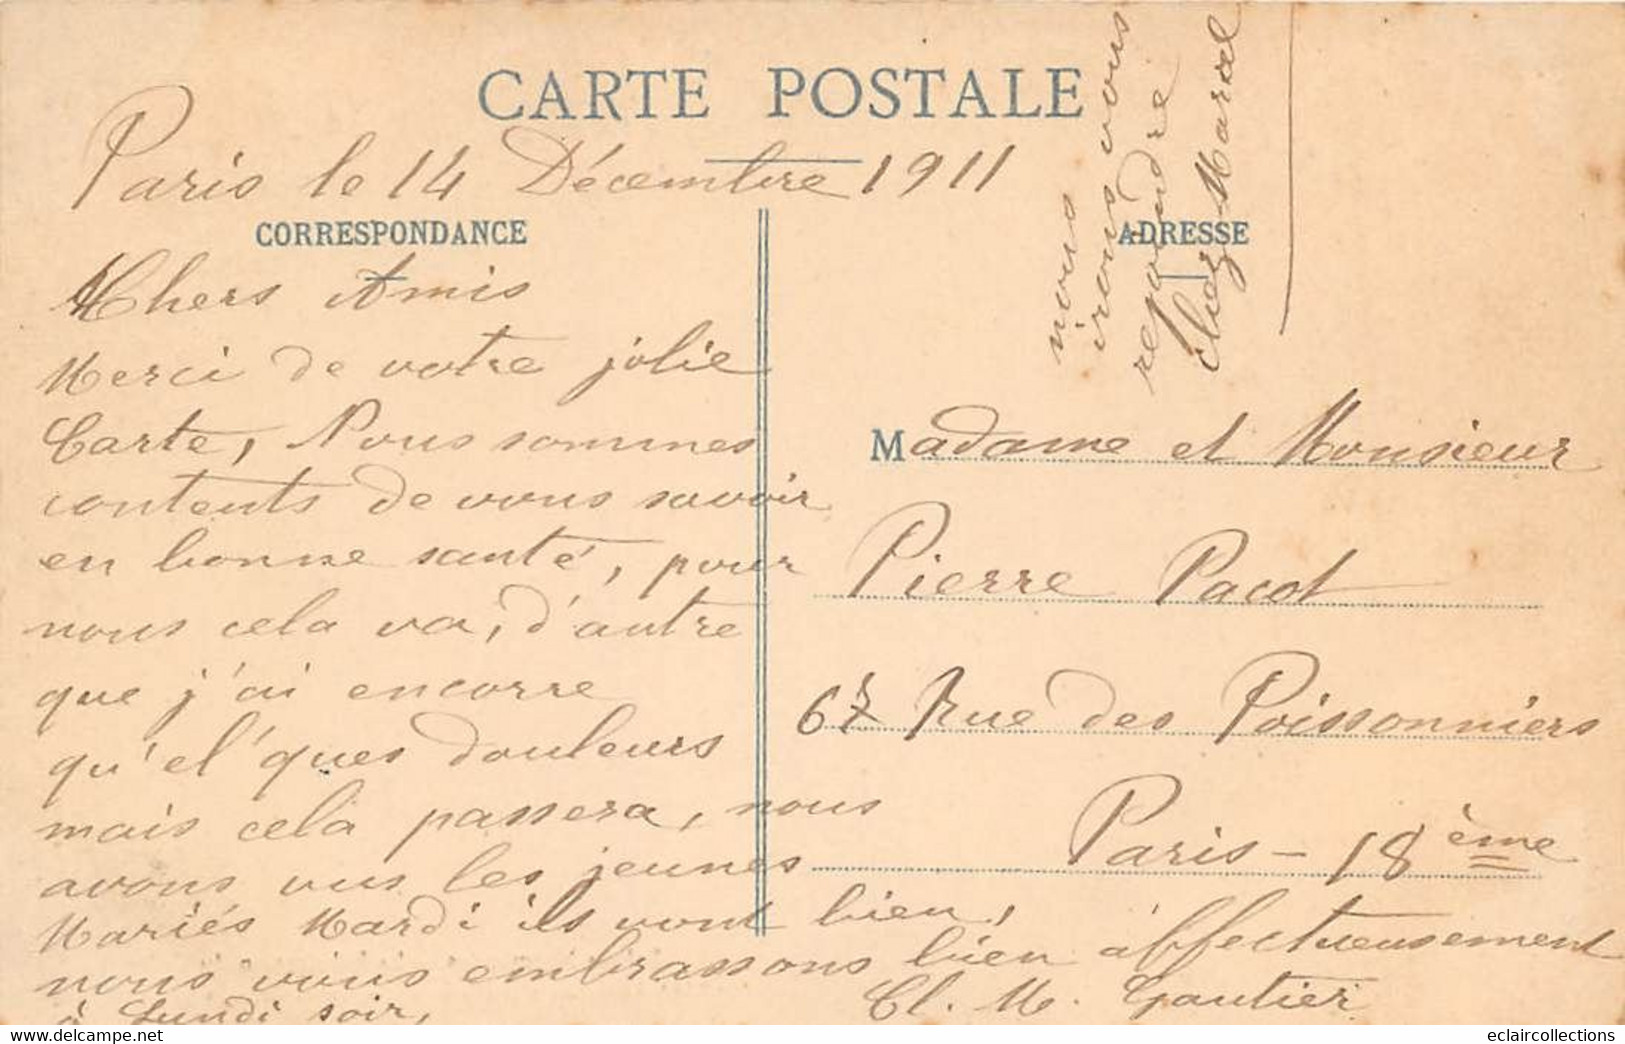 CARTE POSTALE
Paris le 14 Décembre 1911
CORRESPONDANCE
Chers Amis
Merci de votre jolie
Carte, Nous sommes
contents de vous savoir
en bonne santé, pour
nous cela va, d'autre
que j'ai encorre
qu'el'ques douleurs
mais cela passera, nous
avons vus les jeunes
Mariés Mardi ils vont bien,
nous vous embrassons bien affectueusement
à Lundi soir,
Cl. M. Gautier
nous
irons vous
rejoindre
chez Marcel
ADRESSE
Madame et Monsieur
Pierre Pacot
67 Rue des Poissonniers
Paris - 18ème
eclaircollections